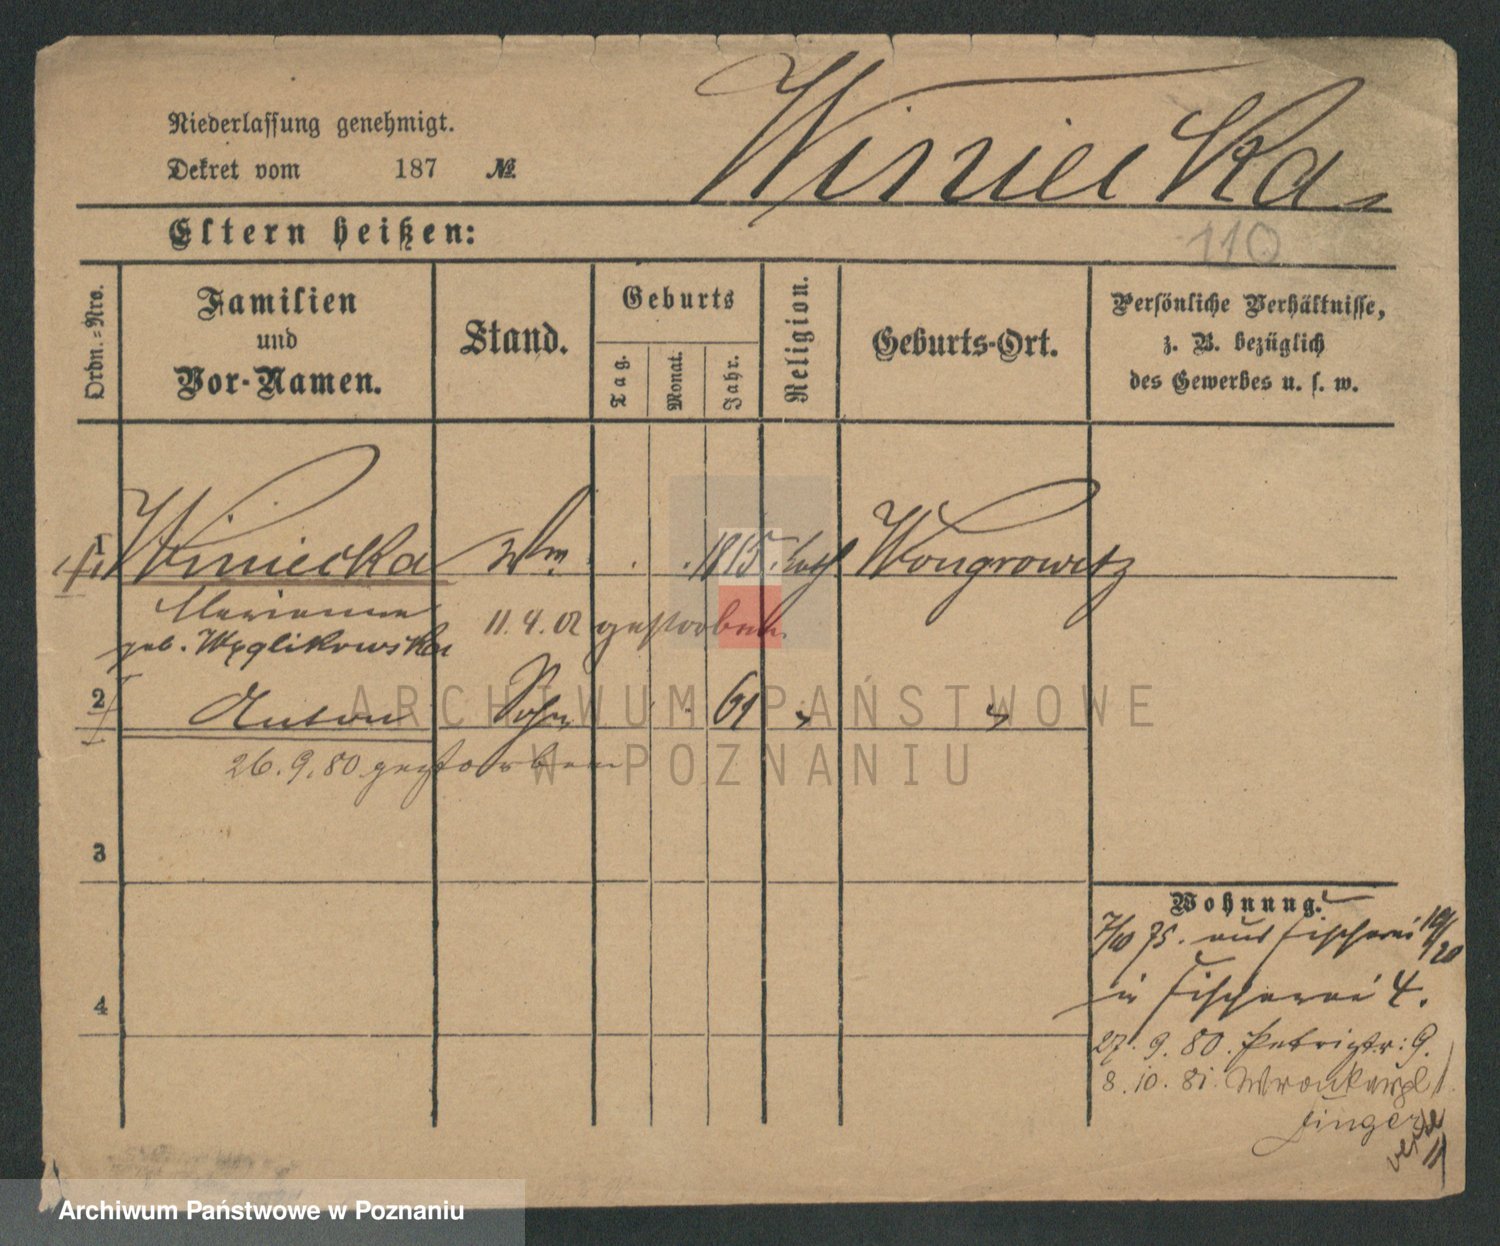 Winiecka
Niederlassung genehmigt.
Dekret vom 187 №
110
Eltern heißen:
Ordn.-Nro.
Familien
und
Vor-Namen.
Stand.
Geburts
Tag.
Monat.
Jahr.
Religion.
Geburts-Ort.
Persönliche Verhältnisse,
z. B. bezüglich
des Gewerbes u. s. w.
1 Winiecka Wwe. 1815. kath Wongrowitz
Marianna 11.4.02 gestorben
geb. Węglikowska
2 Anton Sohn 61 " "
26.9.80 gestorben
3
4
Wohnung.
7/10 75. aus Fischerei 19/20
in Fischerei 4.
27. 9. 80. Petristr: 9.
8. 10. 81. Wronkerpl 1.
ARCHIWUM PAŃSTWOWE
W POZNANIU
Archiwum Państwowe w Poznaniu